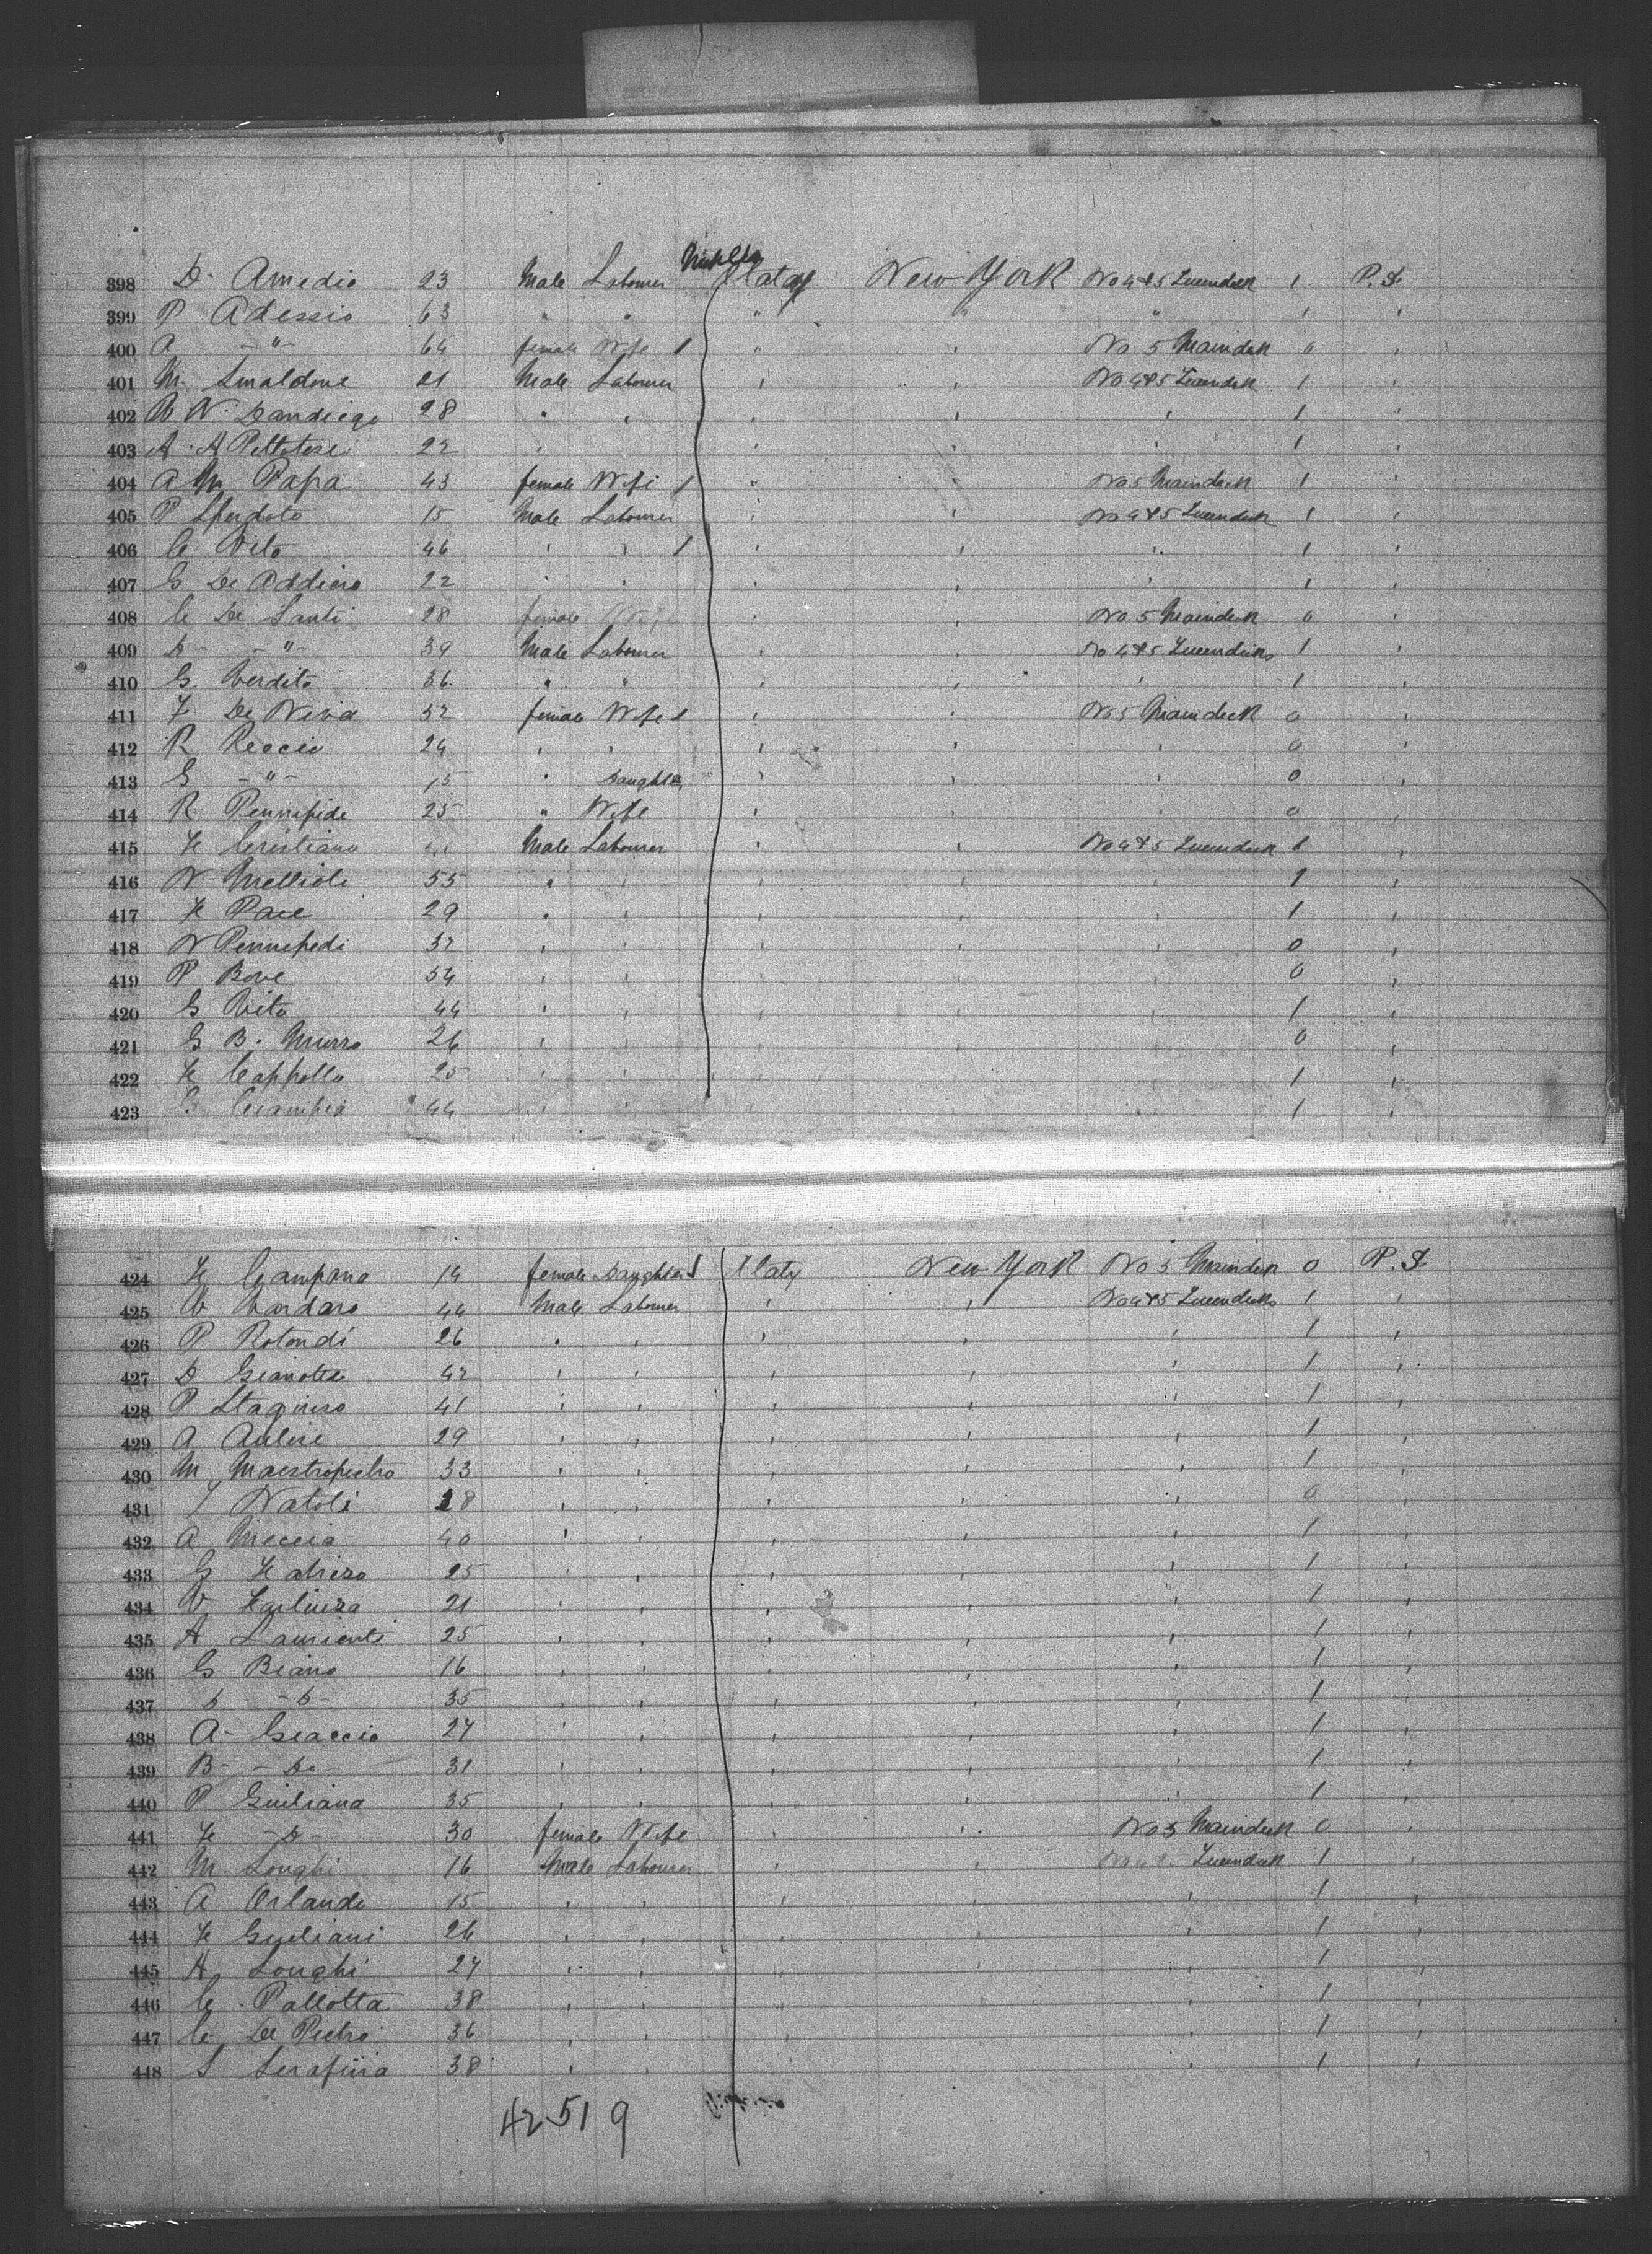 Naples
398 D. Amedio 23 Male Labourer Italy New York No 4 & 5 Tweendeck 1 P. S.
399 P Adessio 63 " " " " " 1 "
400 A -"- 64 female Wife 1 " " No 5 Maindeck 0 "
401 M. Smaldone 21 Male Labourer " " No 4 & 5 Tweendeck 1 "
402 N. Sandiego 28 " " " " " 1 "
403 A. A 22 " " " " 1 "
404 A M Papa 43 female Wife 1 " " No 5 Maindeck 1 "
405 P 15 Male Labourer " " No 4 & 5 Tweendeck 1 "
406 C Vito 46 " " 1 " " " 1 "
407 G De Addieso 22 " " " " 1 "
408 C De Santi 28 female Wife " " No 5 Maindeck 0 "
409 D -"- 39 Male Labourer " " No 4 & 5 Tweendecks 1 "
410 G. Verdito 36 " " " " " 1 "
411 F De Nivia 52 female Wife 1 " " No 5 Maindeck 0 "
412 R Reccio 24 " " " " " 0 "
413 G -"- 15 " Daughter " " " 0 "
414 R Pennipide 25 " Wife " " " 0
415 F Cristiano Male Labourer " " No 4 & 5 Tweendeck 1 "
416 N Mellioli 55 " " " " " 1 "
417 F Pace 29 " " " " " 1 "
418 N Pennipedi 37 " " " " " 0 "
419 P Bove 54 " " " " 0 "
420 G Vito 44 " " " " " 1 "
421 G B. Murro 26 " " " " " 0 "
422 F Cappollo 25 " " " " " 1 "
423 G Ciampio 44 " " " " 1 "
424 F Campano 14 female Daughter 1 Italy New York No 5 Maindeck 0 P. S.
425 V Vardaro 44 Male Labourer " " No 4 & 5 Tweendecks 1 "
426 P Rotondi 26 " " " " " 1 "
427 D Gianotta 42 " " " " " 1 "
428 P Staginso 41 " " " " " 1 "
429 A 29 " " " " " 1 "
430 M Maestropietro 33 " " " " " 1 "
431 Natoli 28 " " " " " 0 "
432 A Meccia 40 " " " " 1 "
433 G 25 " " " " " 1 "
434 V 21 " " " " " 1 "
435 A Laurienti 25 " " " " " 1 "
436 G Biano 16 " " " " " 1 "
437 D -D- 35 " " " " " 1 "
438 A- Giaccio 27 " " " " " 1 "
439 B- -Do- 31 " " " " " 1 "
440 P Giuliana 35 " " " " " 1 "
441 F -D- 30 female Wife " " No 5 Maindeck 0 "
442 M. Longhi 16 Male Labourer " " Tweendeck 1 "
443 A Orlando 15 " " " " " 1 "
444 F Guliani 26 " " " " " 1 "
445 A Longhi 27 " " " " " 1 "
446 C. Pallotta 38 " " " " " 1 "
447 C. De Pietro 36 " " " " 1 "
448 S Serafina 38 " " " 1 "
42519